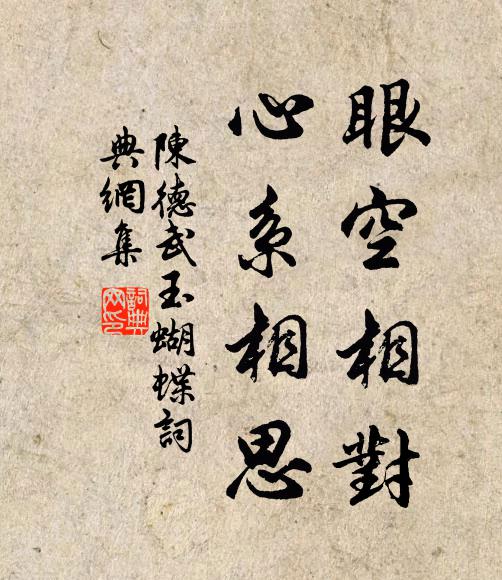 眼空相對
心系相思
陳德武玉蝴蝶詞
典網集
詞典網印